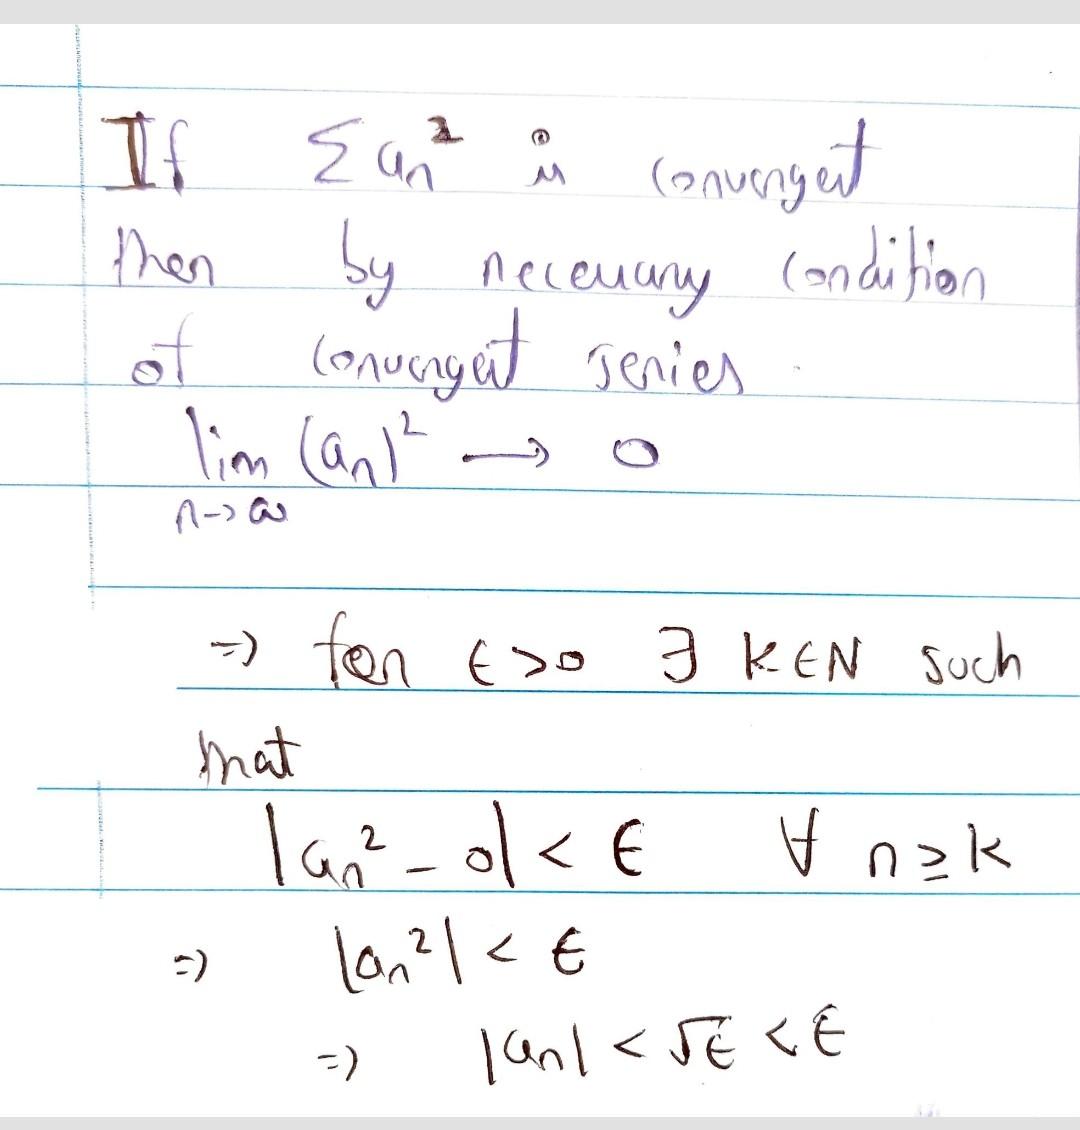 If Σan² is convergent
then by necessary condition
of convergent series
lim (an)² → 0
n→∞
⇒ for ϵ>0 ∃ K∈N such
that
|an² - 0| < ϵ ∀ n≥k
⇒ |an²| < ϵ
⇒ |an| < √ϵ < ϵ